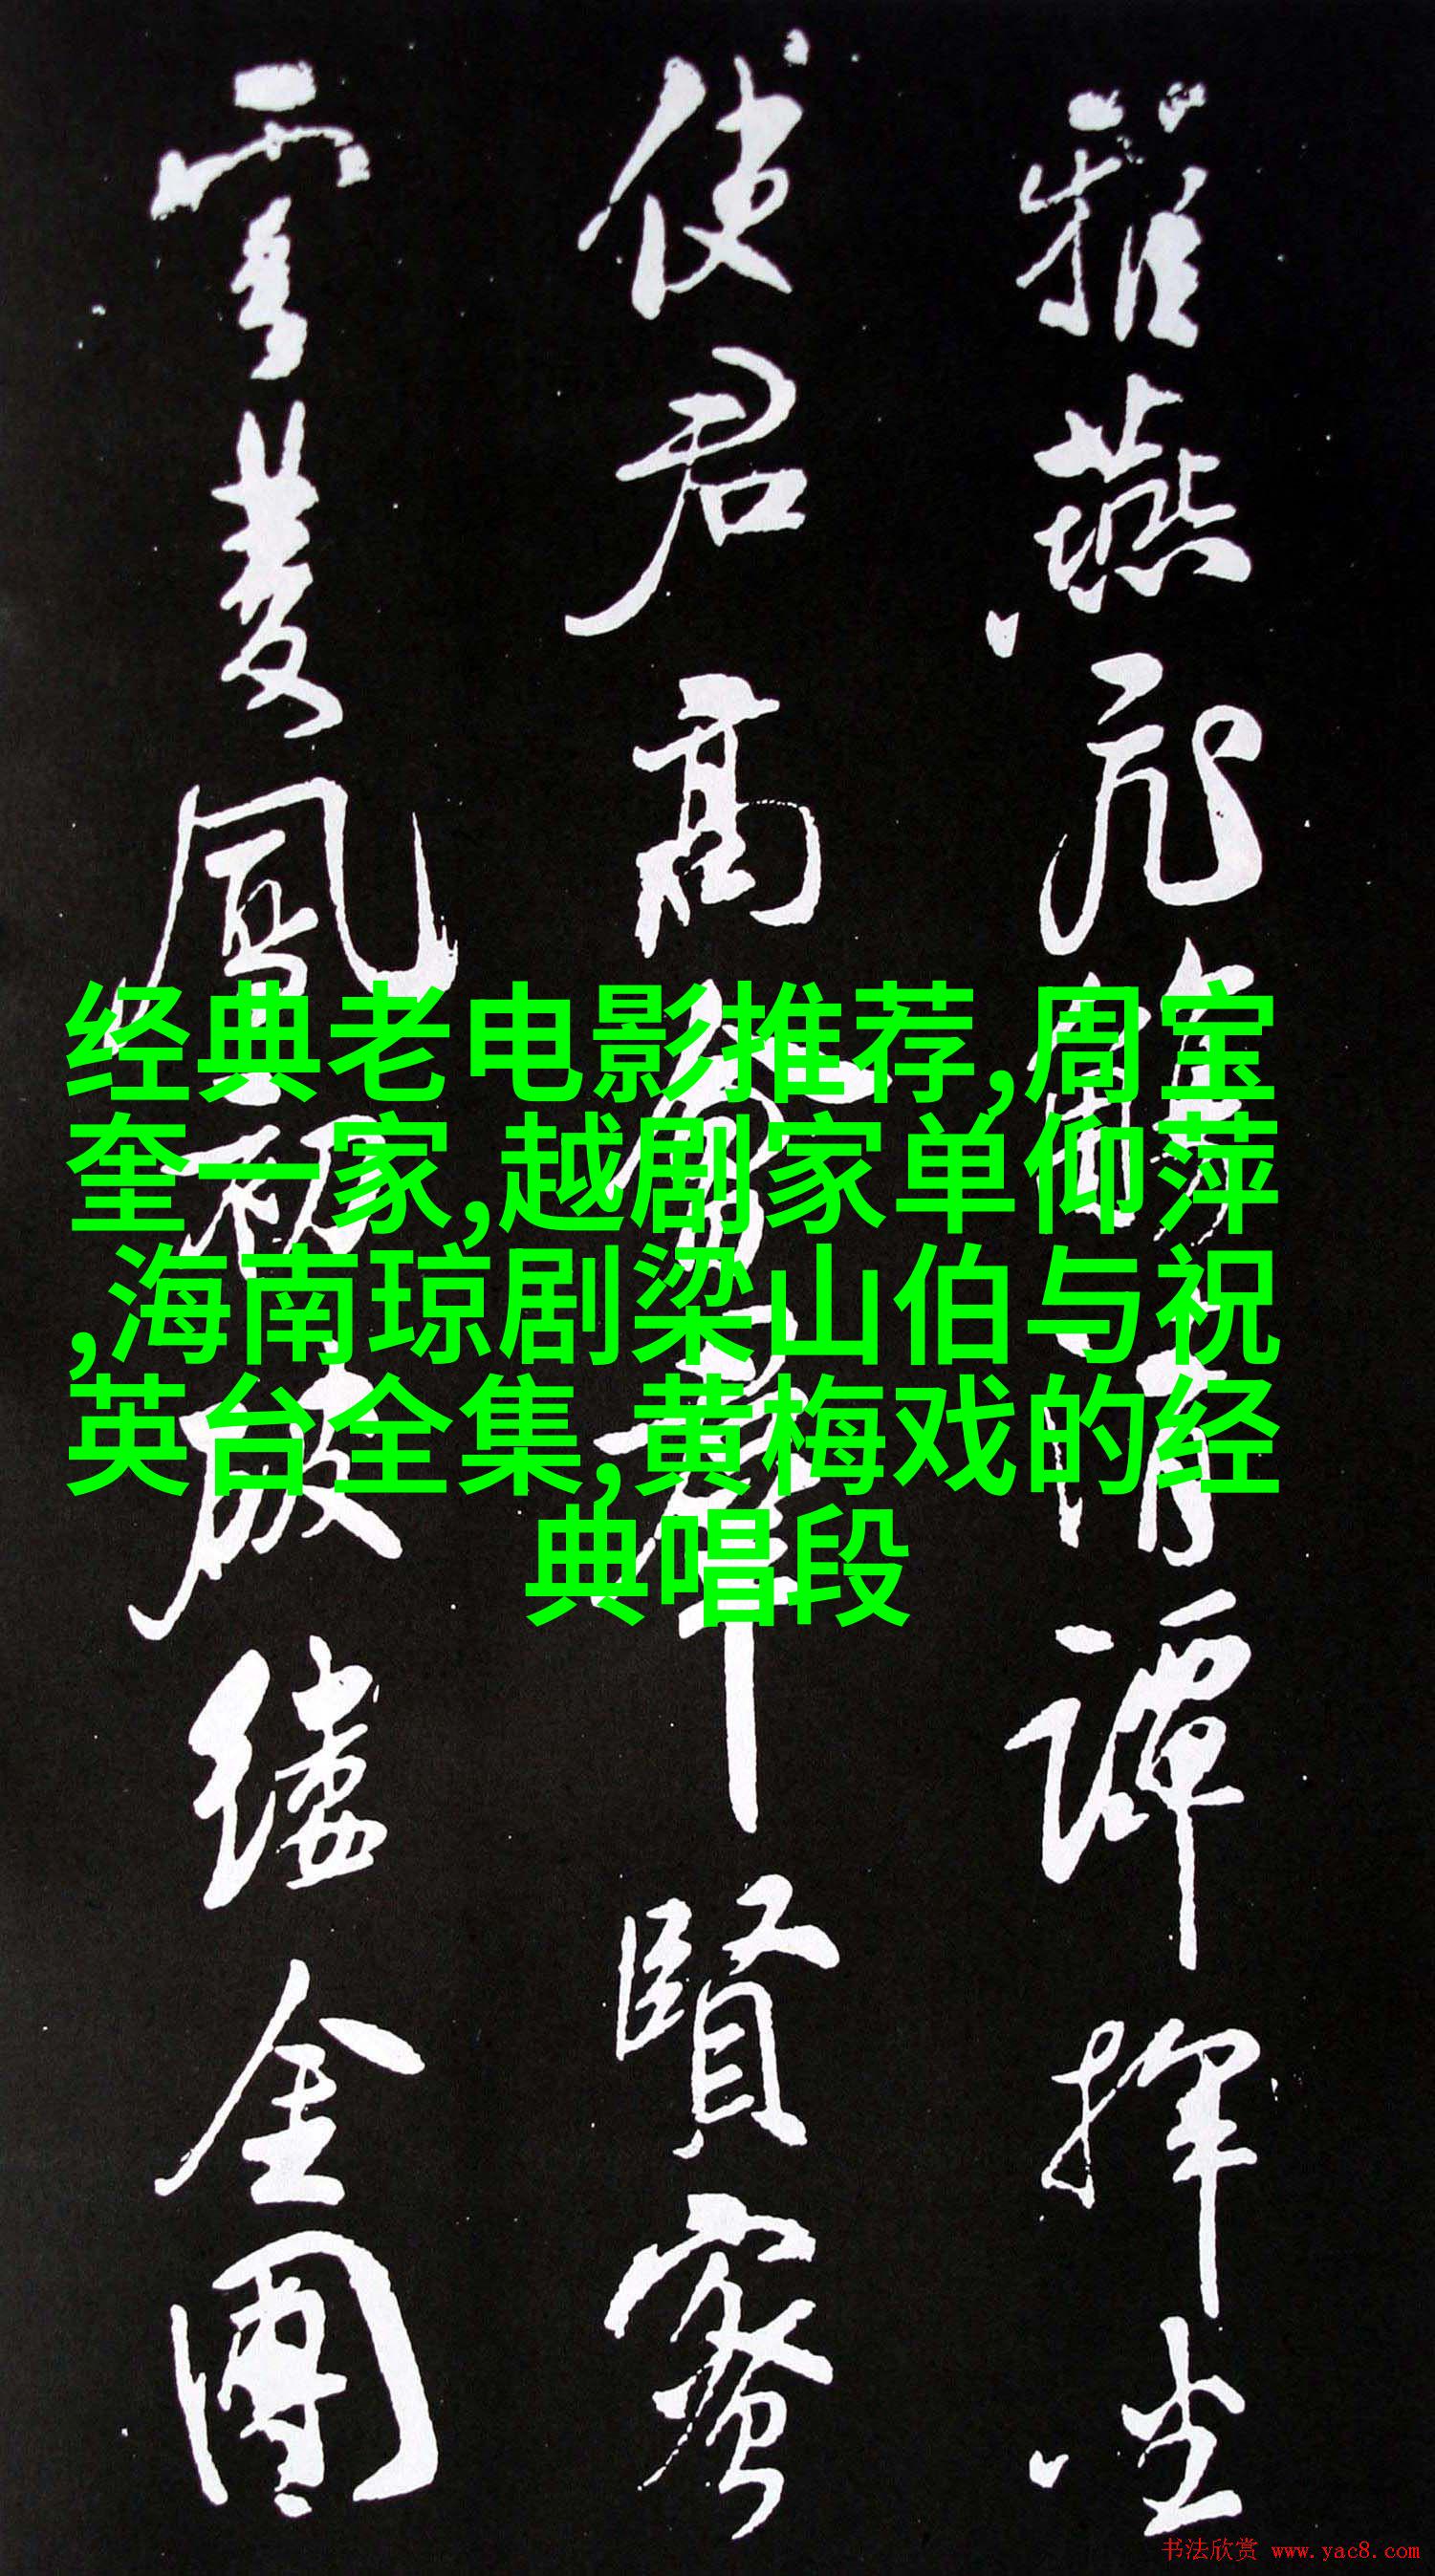 雅燕飛觴清譚揮坐
使君高會羣賢密
雲雙鳳初破縷金團
经典老电影推荐,周宝
奎一家,越剧家单仰萍
,海南琼剧梁山伯与祝
英台全集,黄梅戏的经
典唱段
书法欣赏 www.yac8.com